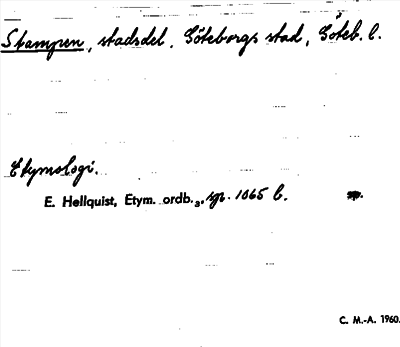 Stampen, stadsdel. Göteborgs stad, Göteb. l.
Etymologi.
E. Hellquist, Etym. ordb.3, sp. 1065 b.
C. M.-A. 1960.